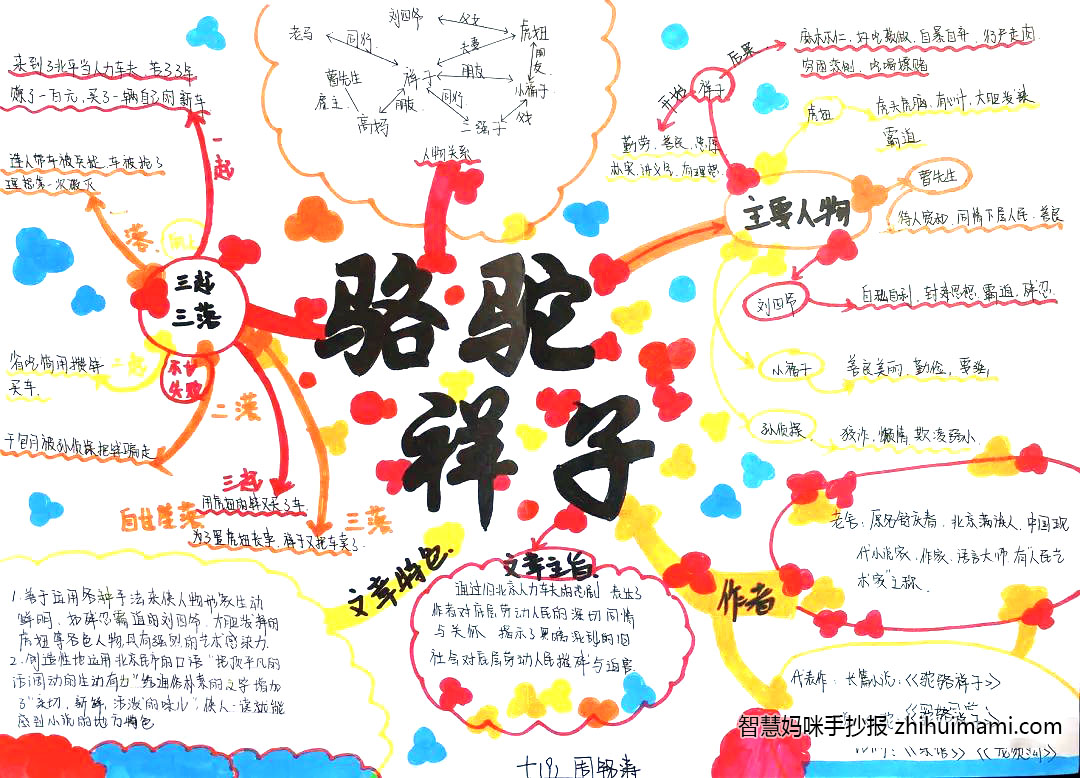 来到了北平当人力车夫 苦了3年
攒了一百元，买了一辆自己的新车
一起
连人带车被兵捉，车被抢了
理想第一次破灭
一落
三起
三落
省吃俭用攒钱
买车.
二起
不甘
失败
二落
干包月被孙侦探把钱骗走
三起
用虎妞的钱又买了车
自甘堕落
三落
为了置虎妞丧事，祥子又把车卖了.
刘四爷
父女
虎妞
老马
同行
夫妻
朋友
曹先生
雇主
祥子
朋友
小福子
高妈
朋友
同行
二强子
人物关系
骆驼
祥子
主要人物
祥子
开始
后果
麻木不仁，好吃懒做，自暴自弃，行尸走肉
勤劳、善良、忠厚
朴实，讲义气，有理想
虎妞
虎头虎脑，有心计，大胆泼辣
霸道
曹先生
待人宽和，同情下层人民，善良
刘四爷
自私自利，封建思想，霸道，残忍
小福子
善良美丽，勤俭，要强
孙侦探
狡诈，懒惰 欺凌弱小
作者
老舍：原名舒庆春，北京满族人，中国现
代小说家、作家，语言大师，有"人民艺
术家"之称.
代表作：长篇小说：《骆驼祥子》
文章特色
1.善于运用各种手法来使人物形象生动
鲜明，如残忍霸道的刘四爷，大胆泼辣的
虎妞等各色人物具有强烈的艺术感染力.
2.创造性地运用北京民户的口语"把顶平凡的
话调动的生动有力"
了"亲切，新鲜，活泼"的味儿"使人一读就能
感到小说的地方特色
文章主旨
通过旧北京人力车夫的悲剧 表出了
作者对底层劳动人民的深切同情
与关怀 揭示了黑暗混乱的旧
社会对底层劳动人民摧残与迫害
智慧妈咪手抄报 zhihuimami.com